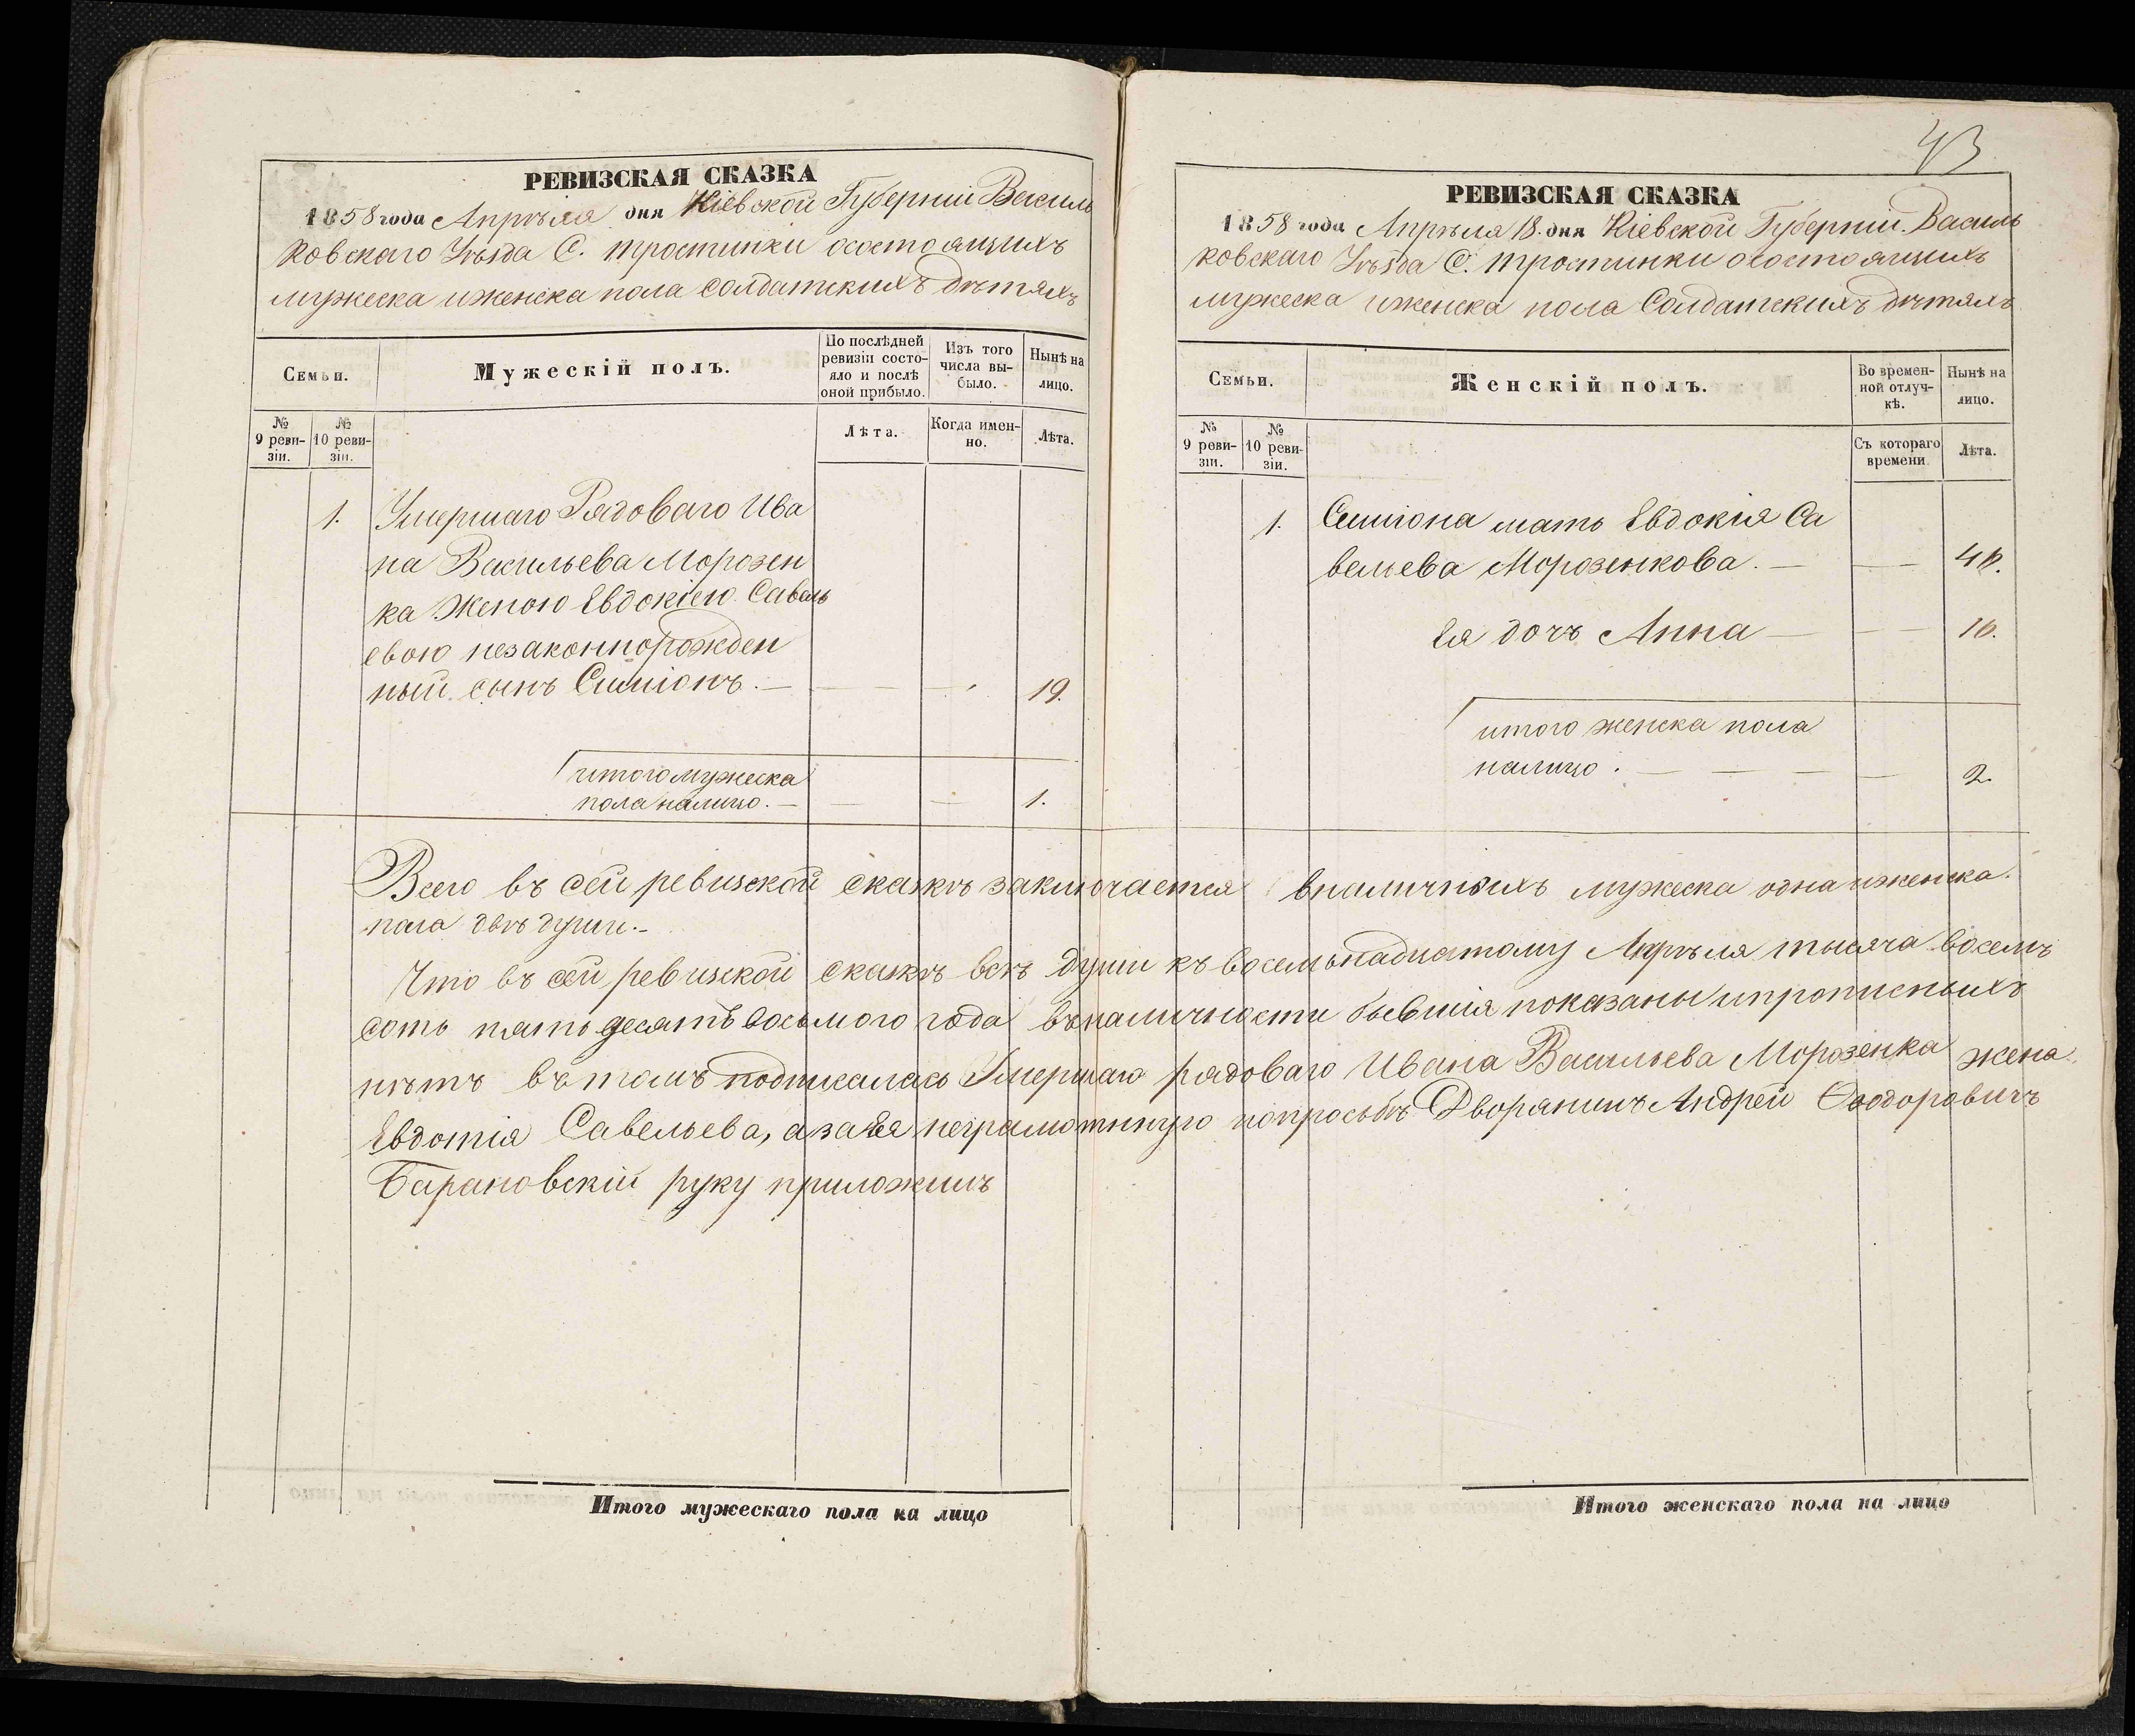 РЕВИЗСКАЯ СКАЗКА
1858 года Апрѣля дня Кіевской Губерніи Василь
ковскаго Уѣзда С. Тростинки осостоящихъ
мужеска иженска пола солдатскихъ дѣтяхъ
Семьи.
Мужескій полъ.
По послѣдней ревизіи состо-
яло и послѣ оной прибыло.
Изъ того числа вы-
было.
Нынѣ на лицо.
№ 9 реви-
зіи.
№ 10 реви-
зіи.
Лѣта.
Когда имен-
но.
Лѣта.
1. Умершаго Рядоваго Ива
на Васильева Морозен
ка Женою Евдокіею Савель
евою незаконнорожден
ный сынъ Симіонъ. — 19.
итого мужеска
пола налицо. — 1.
43
РЕВИЗСКАЯ СКАЗКА
1858 года Апрѣля 18. дня Кіевской Губерніи. Василь
ковскаго Уѣзда С. Тростинки осостоящихъ
мужеска иженска пола Солдатскихъ дѣтяхъ
Семьи.
Женскій полъ.
Во времен-
ной отлуч-
кѣ.
Нынѣ на лицо.
№ 9 реви-
зіи.
№ 10 реви-
зіи.
Съ котораго времени
Лѣта.
1. Симіона мать Евдокія Са
вельева Морозенкова. —
Ея дочъ Анна —
итого женска пола
налицо. — 2.
Всего въ сей ревизской сказкѣ заключается вналичныхъ мужеска одна иженска
пола двѣ души.
Что въ сей ревизской сказкѣ всѣ души къ восемьнадцатому Апрѣля тысяча восемъ
сотъ пятьдесятъ восьмого года въналичности бывшія показаны ипрописныхъ
нѣтъ въ томъ подписалась Умершаго рядоваго Ивана Васильева Морозенка жена
Евдотія Савельева, а за Ея неграмотную попросьбѣ Дворянинъ Андрей Ѳеодоровичъ
Барановскій руку приложилъ
Итого мужескаго пола на лицо
Итого женскаго пола на лицо